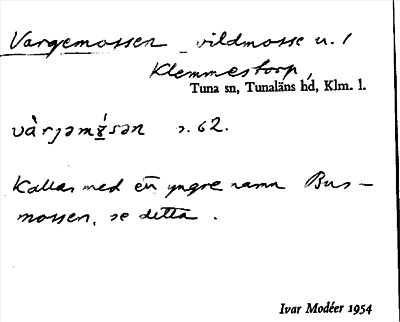 Vargemossen, vildmosse u. 1
Klemmestorp,
Tuna sn, Tunaläns hd, Klm. l.
s. 62.
Kallas med ett yngre namn Bus-
mossen, se detta.
Ivar Modéer 1954